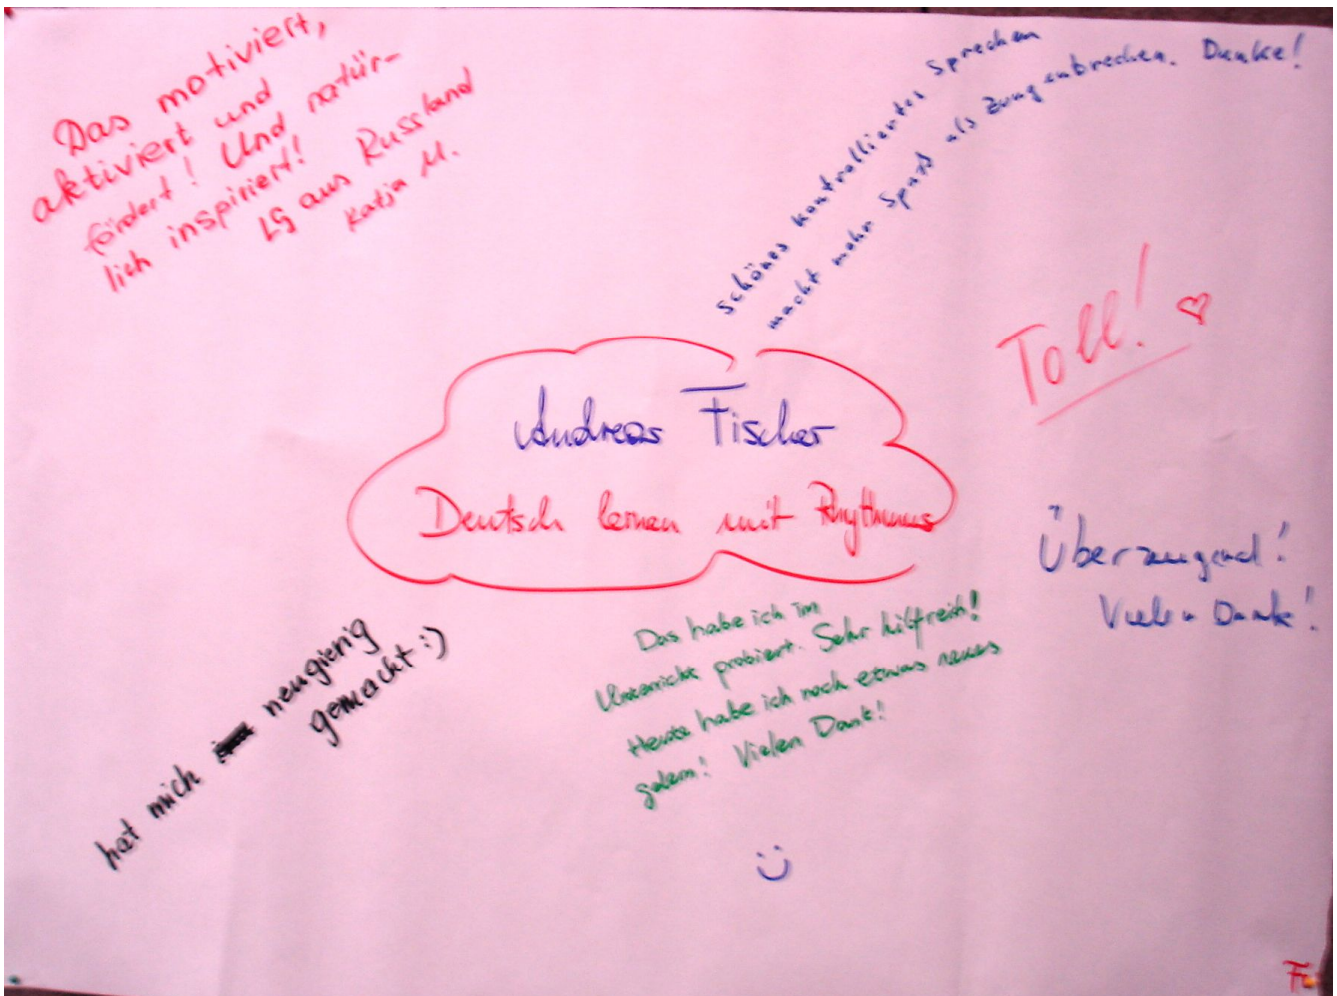 Das motiviert,
aktiviert und
fördert! Und natür-
lich inspiriert!
LG aus Russland
Katja M.
schönes kontrolliertes sprechen
macht mehr Spaß als Zungenbrechen. Danke!
Toll!
Andreas Fischer
Deutsch lernen mit Rhythmus
Überzeugend!
Vielen Dank!
Das habe ich im
Unterricht probiert. Sehr hilfreich!
Heute habe ich noch etwas neues
gelern! Vielen Dank!
hat mich neugierig
gemacht :)